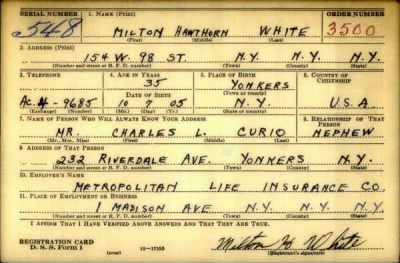 SERIAL NUMBER 1. NAME (Print) ORDER NUMBER
548 MILTON HAWTHORN WHITE 3500
(First) (Middle) (Last)
2. ADDRESS (Print)
154 W. 98 ST. N.Y. N.Y. N.Y.
(Number and street or R. F. D. number) (Town) (County) (State)
3. TELEPHONE 4. AGE IN YEARS 5. PLACE OF BIRTH 6. COUNTRY OF CITIZENSHIP
35 YONKERS
DATE OF BIRTH (Town or county)
AC. 4-9685 10 7 05 N.Y. U.S.A
(Exchange) (Number) (Mo.) (Day) (Yr.) (State or country)
7. NAME OF PERSON WHO WILL ALWAYS KNOW YOUR ADDRESS 8. RELATIONSHIP OF THAT PERSON
MR. CHARLES L. CURIO NEPHEW
(Mr., Mrs., Miss) (First) (Middle) (Last)
9. ADDRESS OF THAT PERSON
232 RIVERDALE AVE. YONKERS N.Y.
(Number and street or R. F. D. number) (Town) (County) (State)
10. EMPLOYER'S NAME
METROPOLITAN LIFE INSURANCE CO.
11. PLACE OF EMPLOYMENT OR BUSINESS
1 MADISON AVE N.Y. N.Y. N.Y.
(Number and street or R. F. D. number) (Town) (County) (State)
I AFFIRM THAT I HAVE VERIFIED ABOVE ANSWERS AND THAT THEY ARE TRUE.
REGISTRATION CARD
D. S. S. FORM 1 (over) 16-17105 Milton H. White
(Registrant's signature)